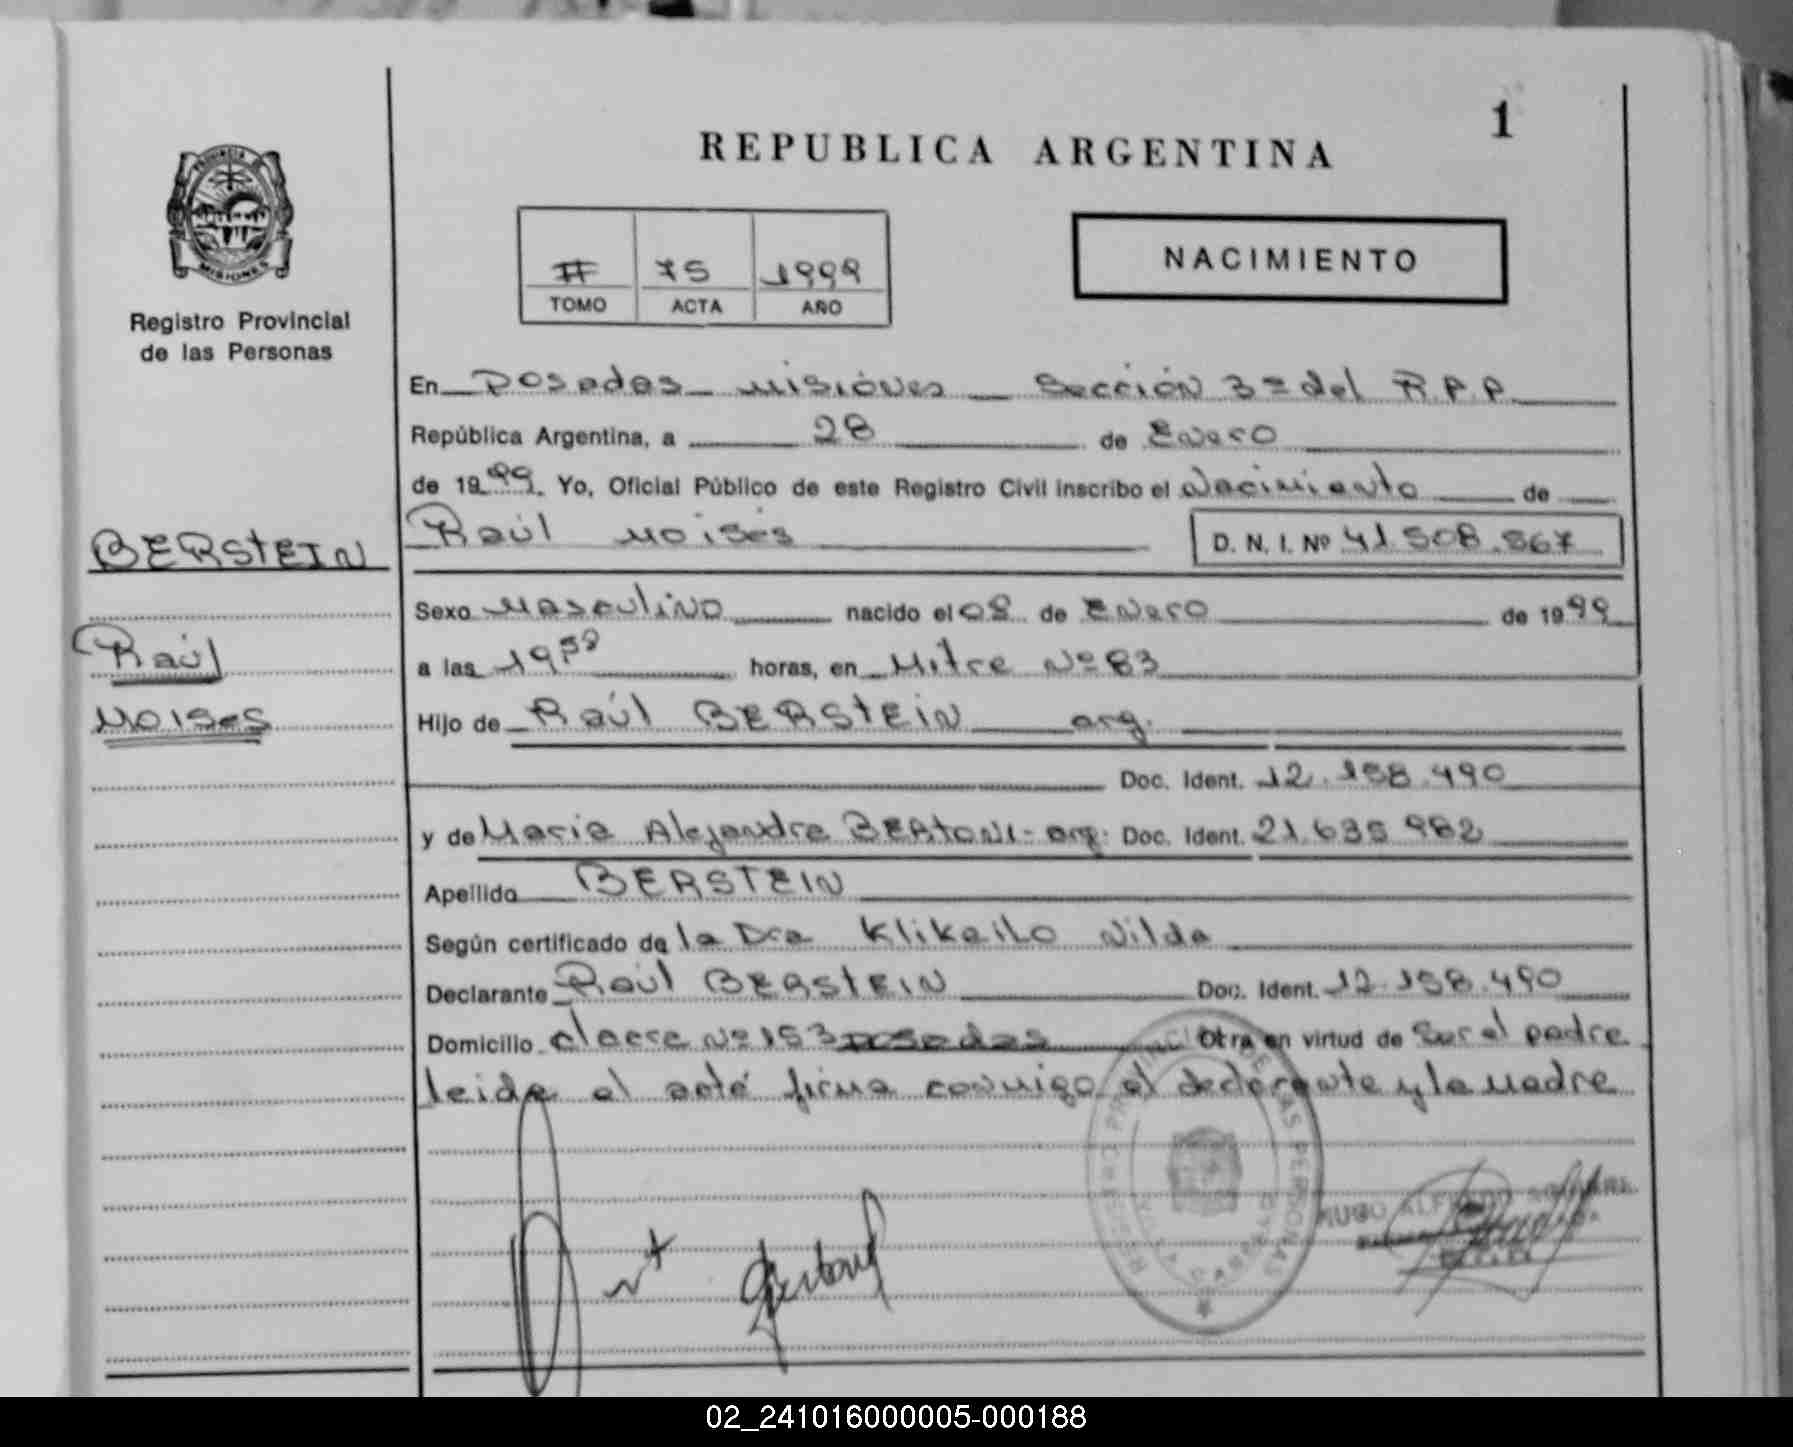 1
REPUBLICA ARGENTINA
PROVINCIA DE
MISIONES
Registro Provincial
de las Personas
# 75 1999
TOMO ACTA AÑO
NACIMIENTO
En Posadas Misiónes Sección 3º del R.P.P.
República Argentina, a 28 de Enero
de 1999. Yo, Oficial Público de este Registro Civil inscribo el Nacimiento de
BERStEIN
Raúl Moisés D. N. I. Nº 41.508.567
Sexo Masculino nacido el 08 de Enero de 1999
Raúl
a las 19 horas, en Mitre Nº 83
Moises
Hijo de Raúl BERStEIN arg.
Doc. Ident. 12.158.490
y de Maria Alejandra BERtoni - arg. Doc. Ident. 21.635.982
Apellido BERSTEIN
Según certificado de la Dra Klikailo Nilda
Declarante Raúl BERStEIN Doc. Ident. 12.158.490
Domicilio Nº 153 Posadas Otra en virtud de Ser el padre
leida el acta firma conmigo el declarante y la Madre
REGISTRO PROVINCIAL DE LAS PERSONAS
HUGO ALFREDO
02_241016000005-000188